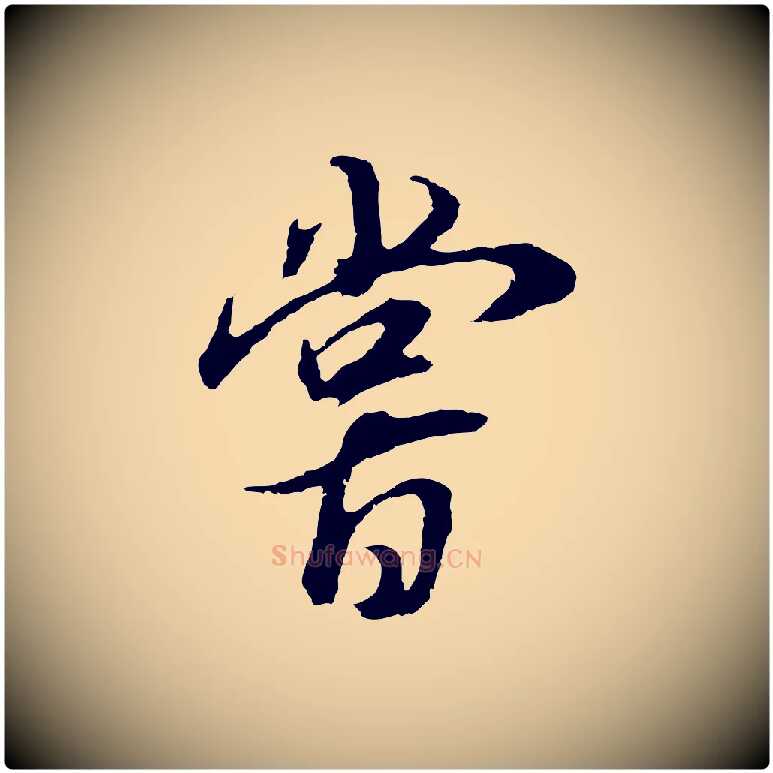 嘗
Shufawang.CN